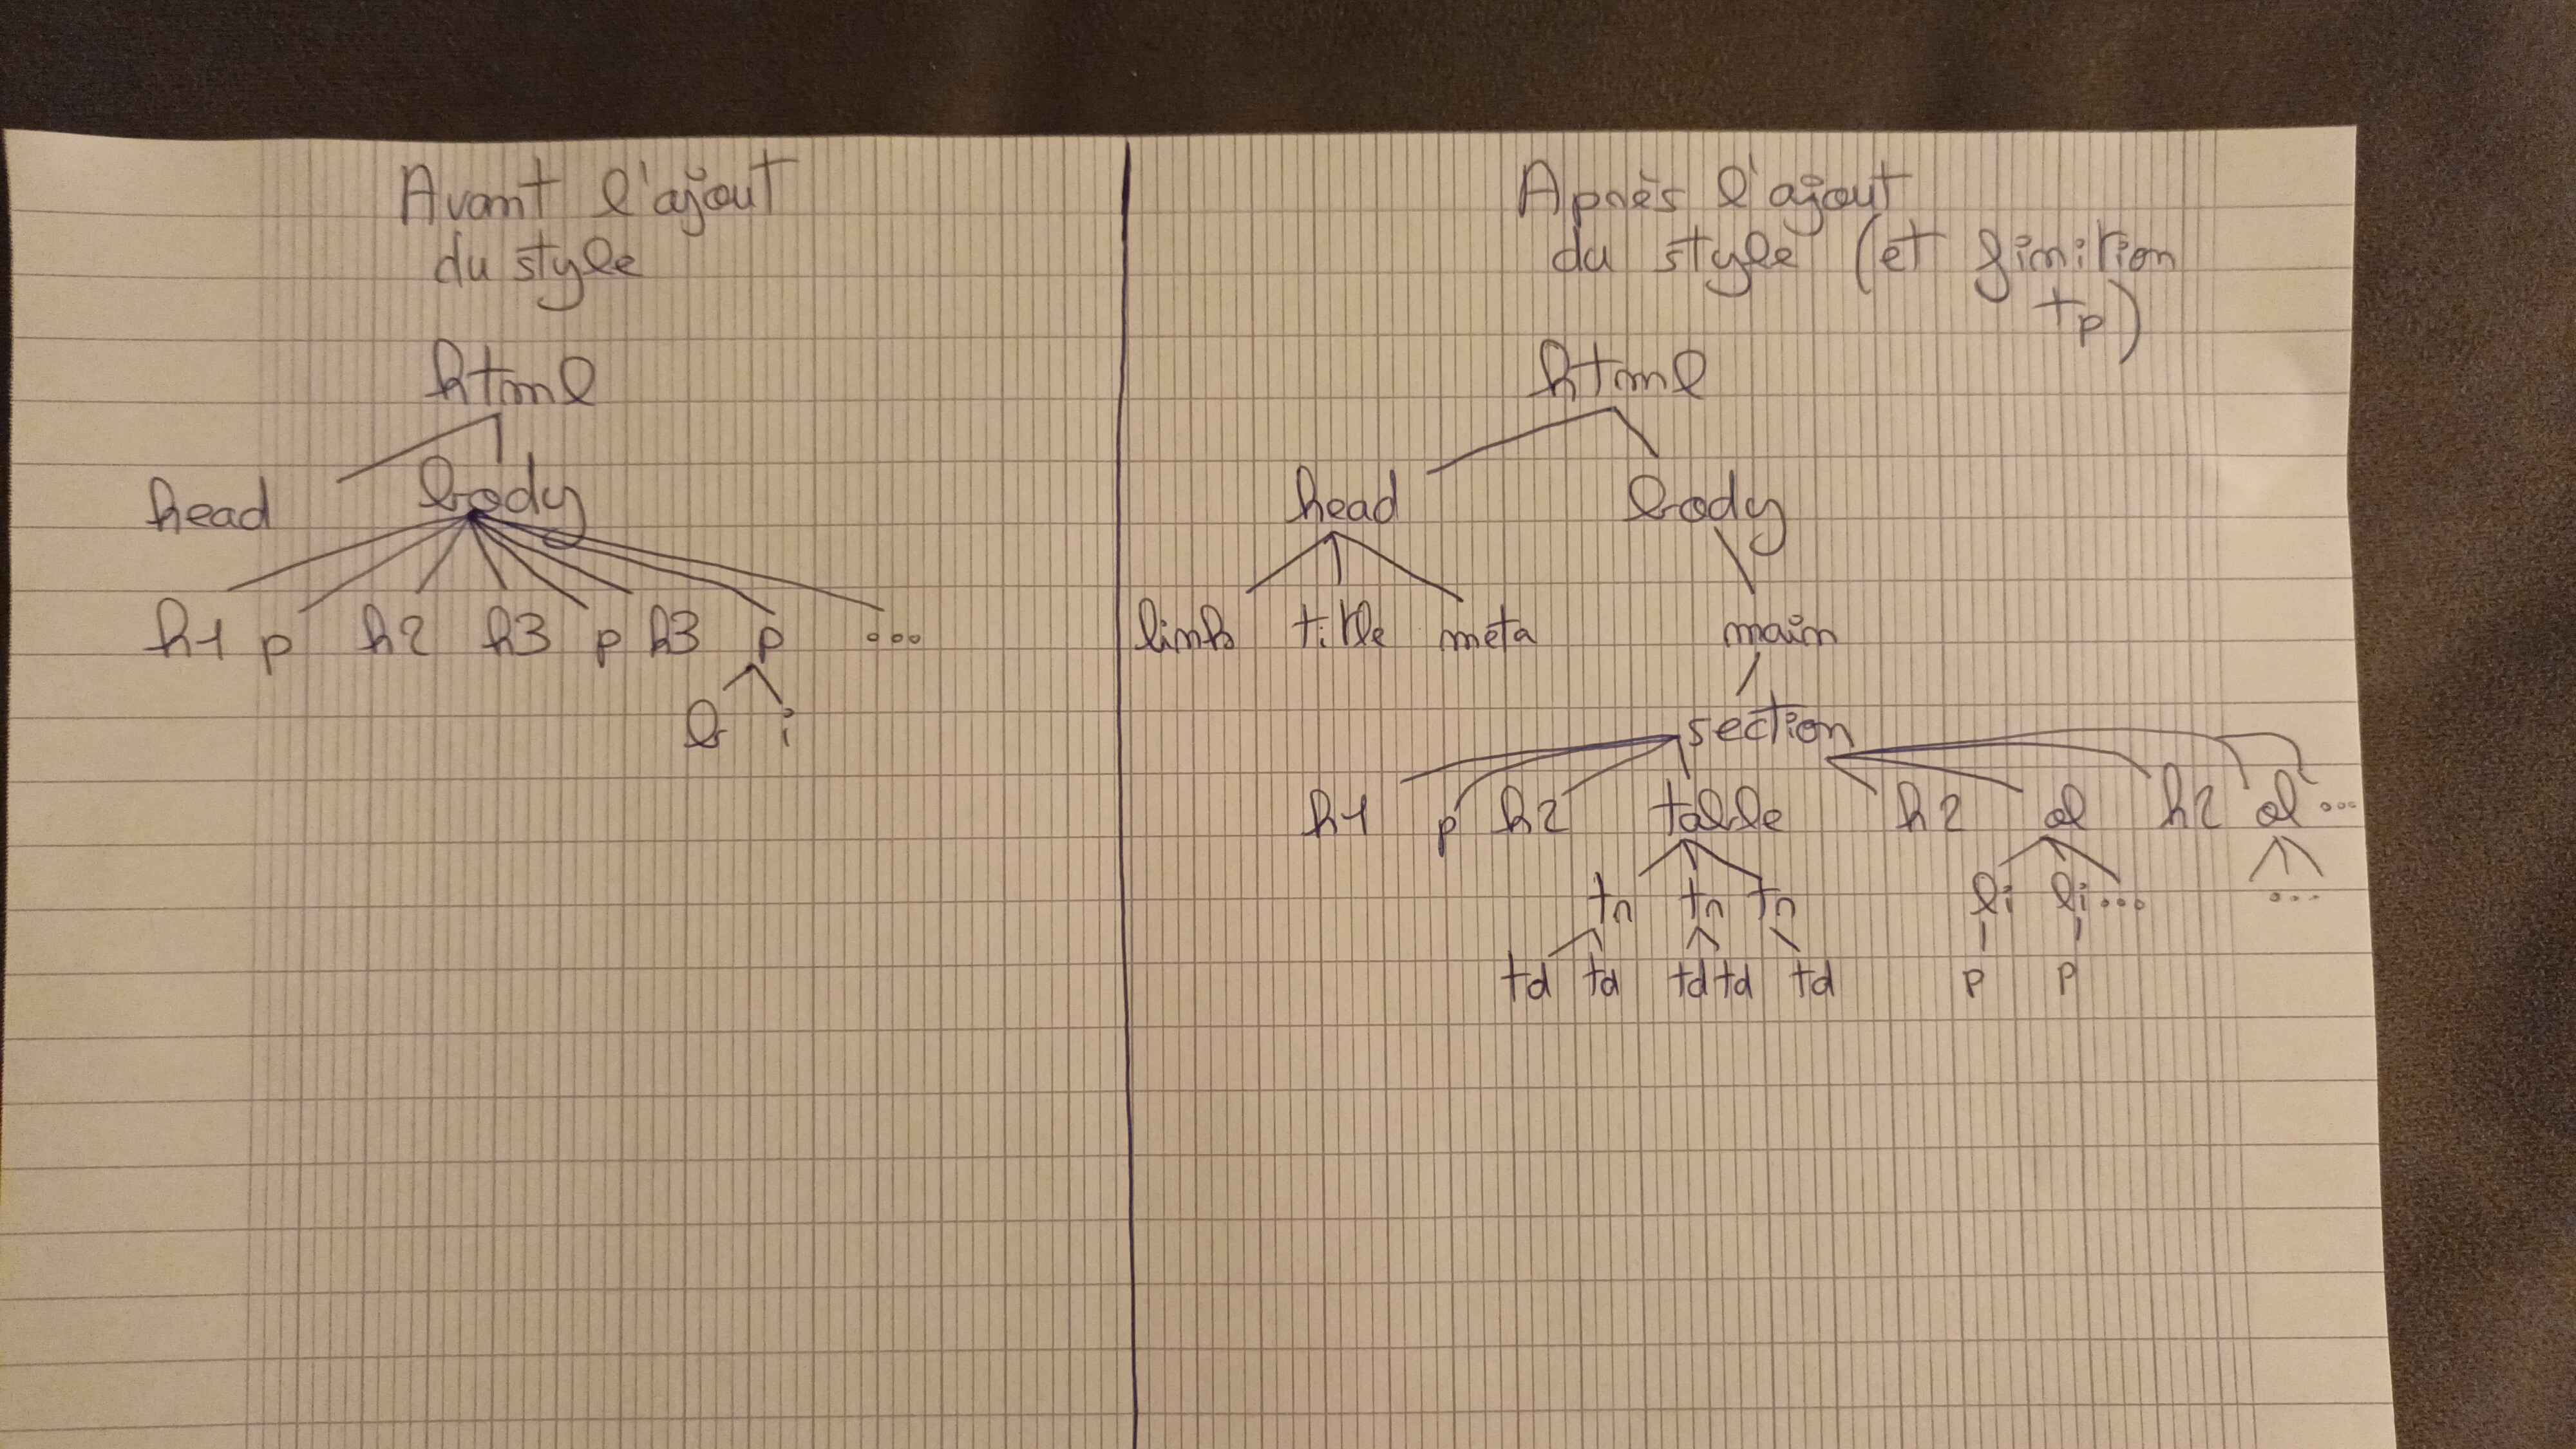 Avant l'ajout
du style
html
head body
h1 p h2 h3 p h3 p ...
b i
Après l'ajout
du style (et finition
tp)
html
head body
link title meta main
section
h1 p h2 table h2 ol h2 ol ...
tr tr tr li li ... ...
td td td td td p p